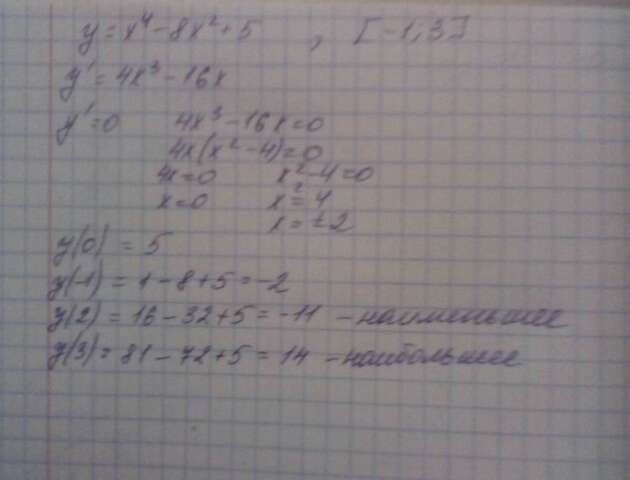 y = x⁴ - 8x² + 5 , [-1; 3]
y' = 4x³ - 16x
y' = 0 4x³ - 16x = 0
4x(x² - 4) = 0
4x = 0 x² - 4 = 0
x = 0 x² = 4
x = ±2
y(0) = 5
y(-1) = 1 - 8 + 5 = -2
y(2) = 16 - 32 + 5 = -11 - наименьшее
y(3) = 81 - 72 + 5 = 14 - наибольшее